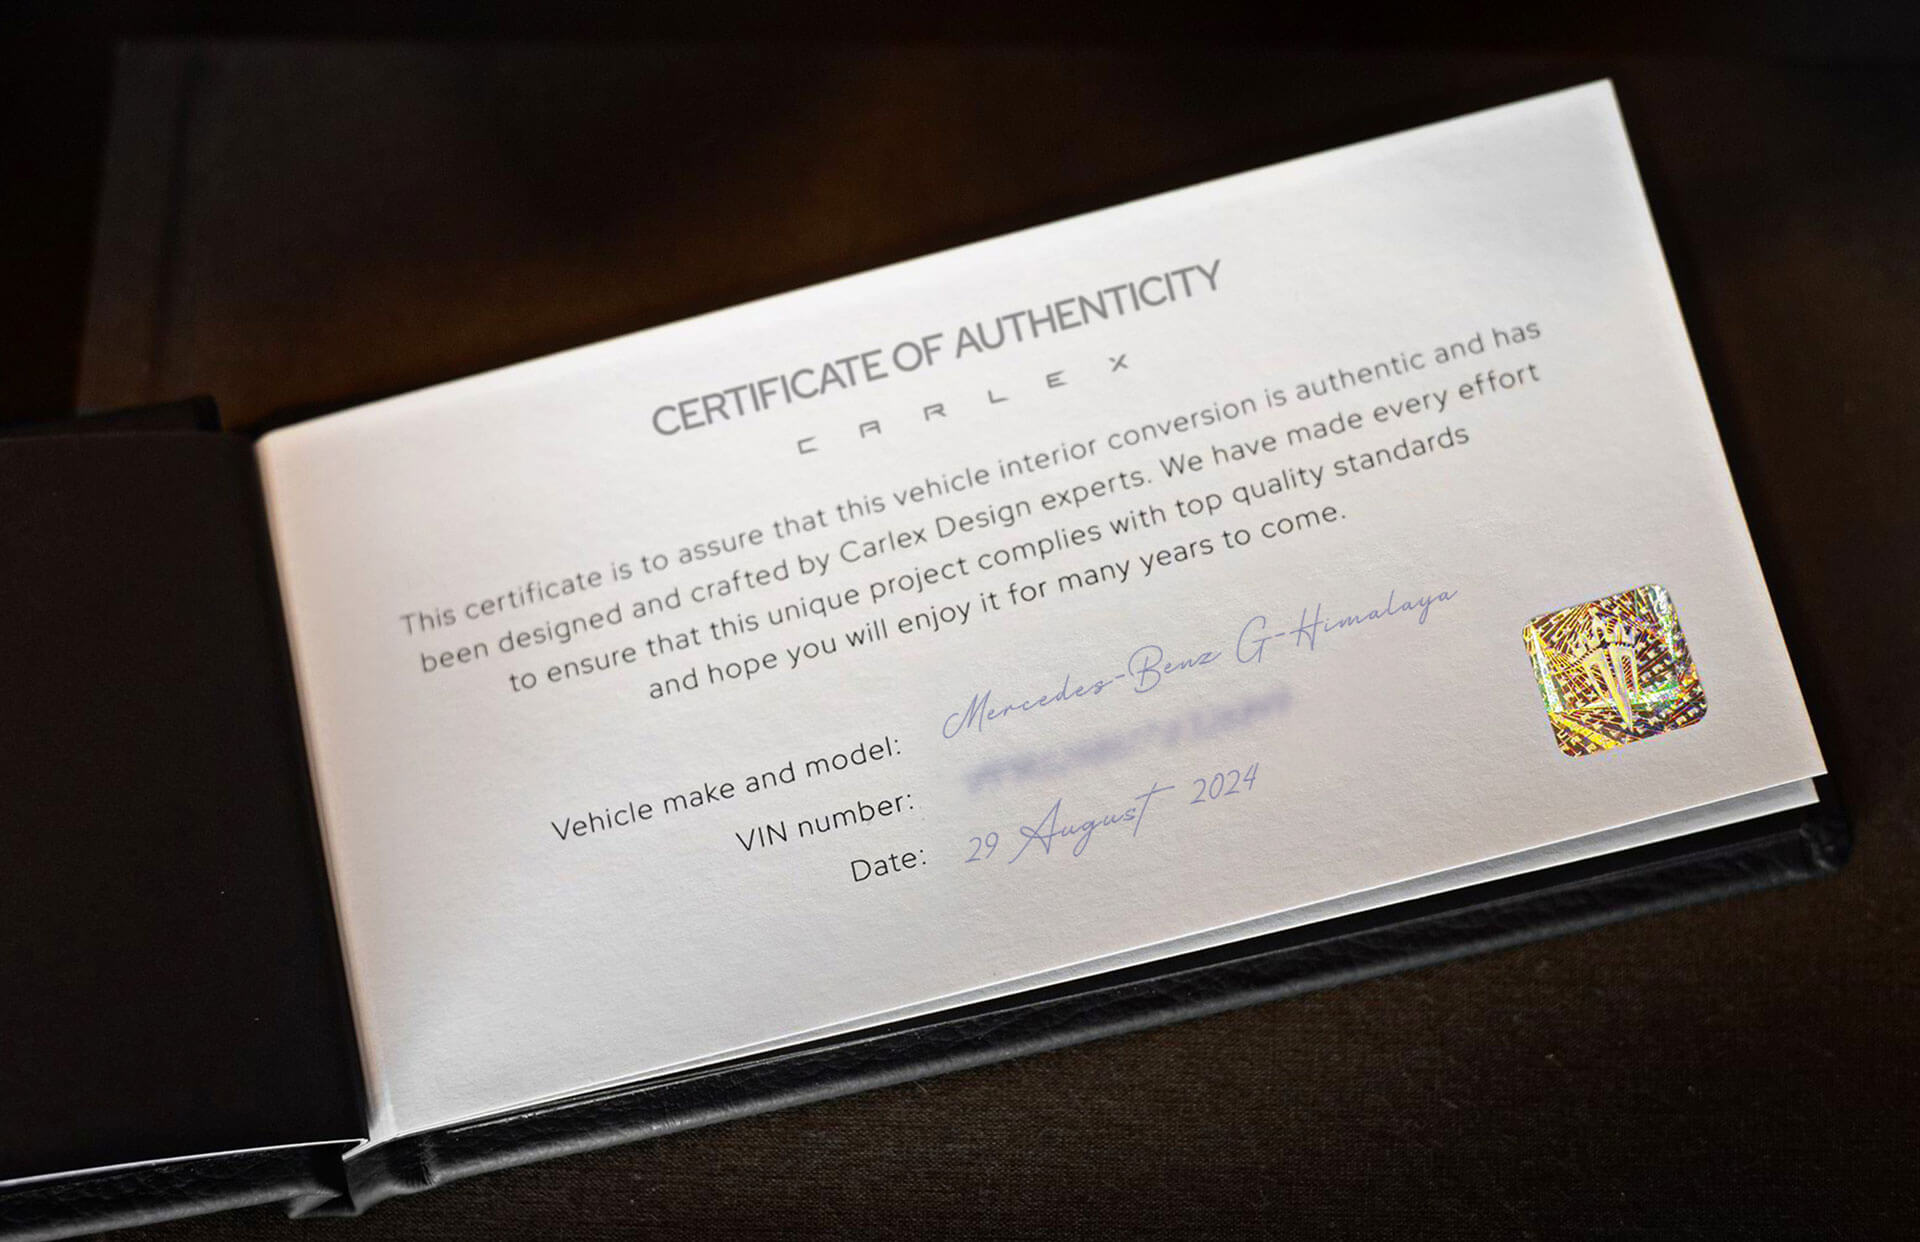 CERTIFICATE OF AUTHENTICITY
CARLEX
This certificate is to assure that this vehicle interior conversion is authentic and has
been designed and crafted by Carlex Design experts. We have made every effort
to ensure that this unique project complies with top quality standards
and hope you will enjoy it for many years to come.
Vehicle make and model: Mercedes-Benz G-Himalaya
VIN number:
Date: 29 August 2024